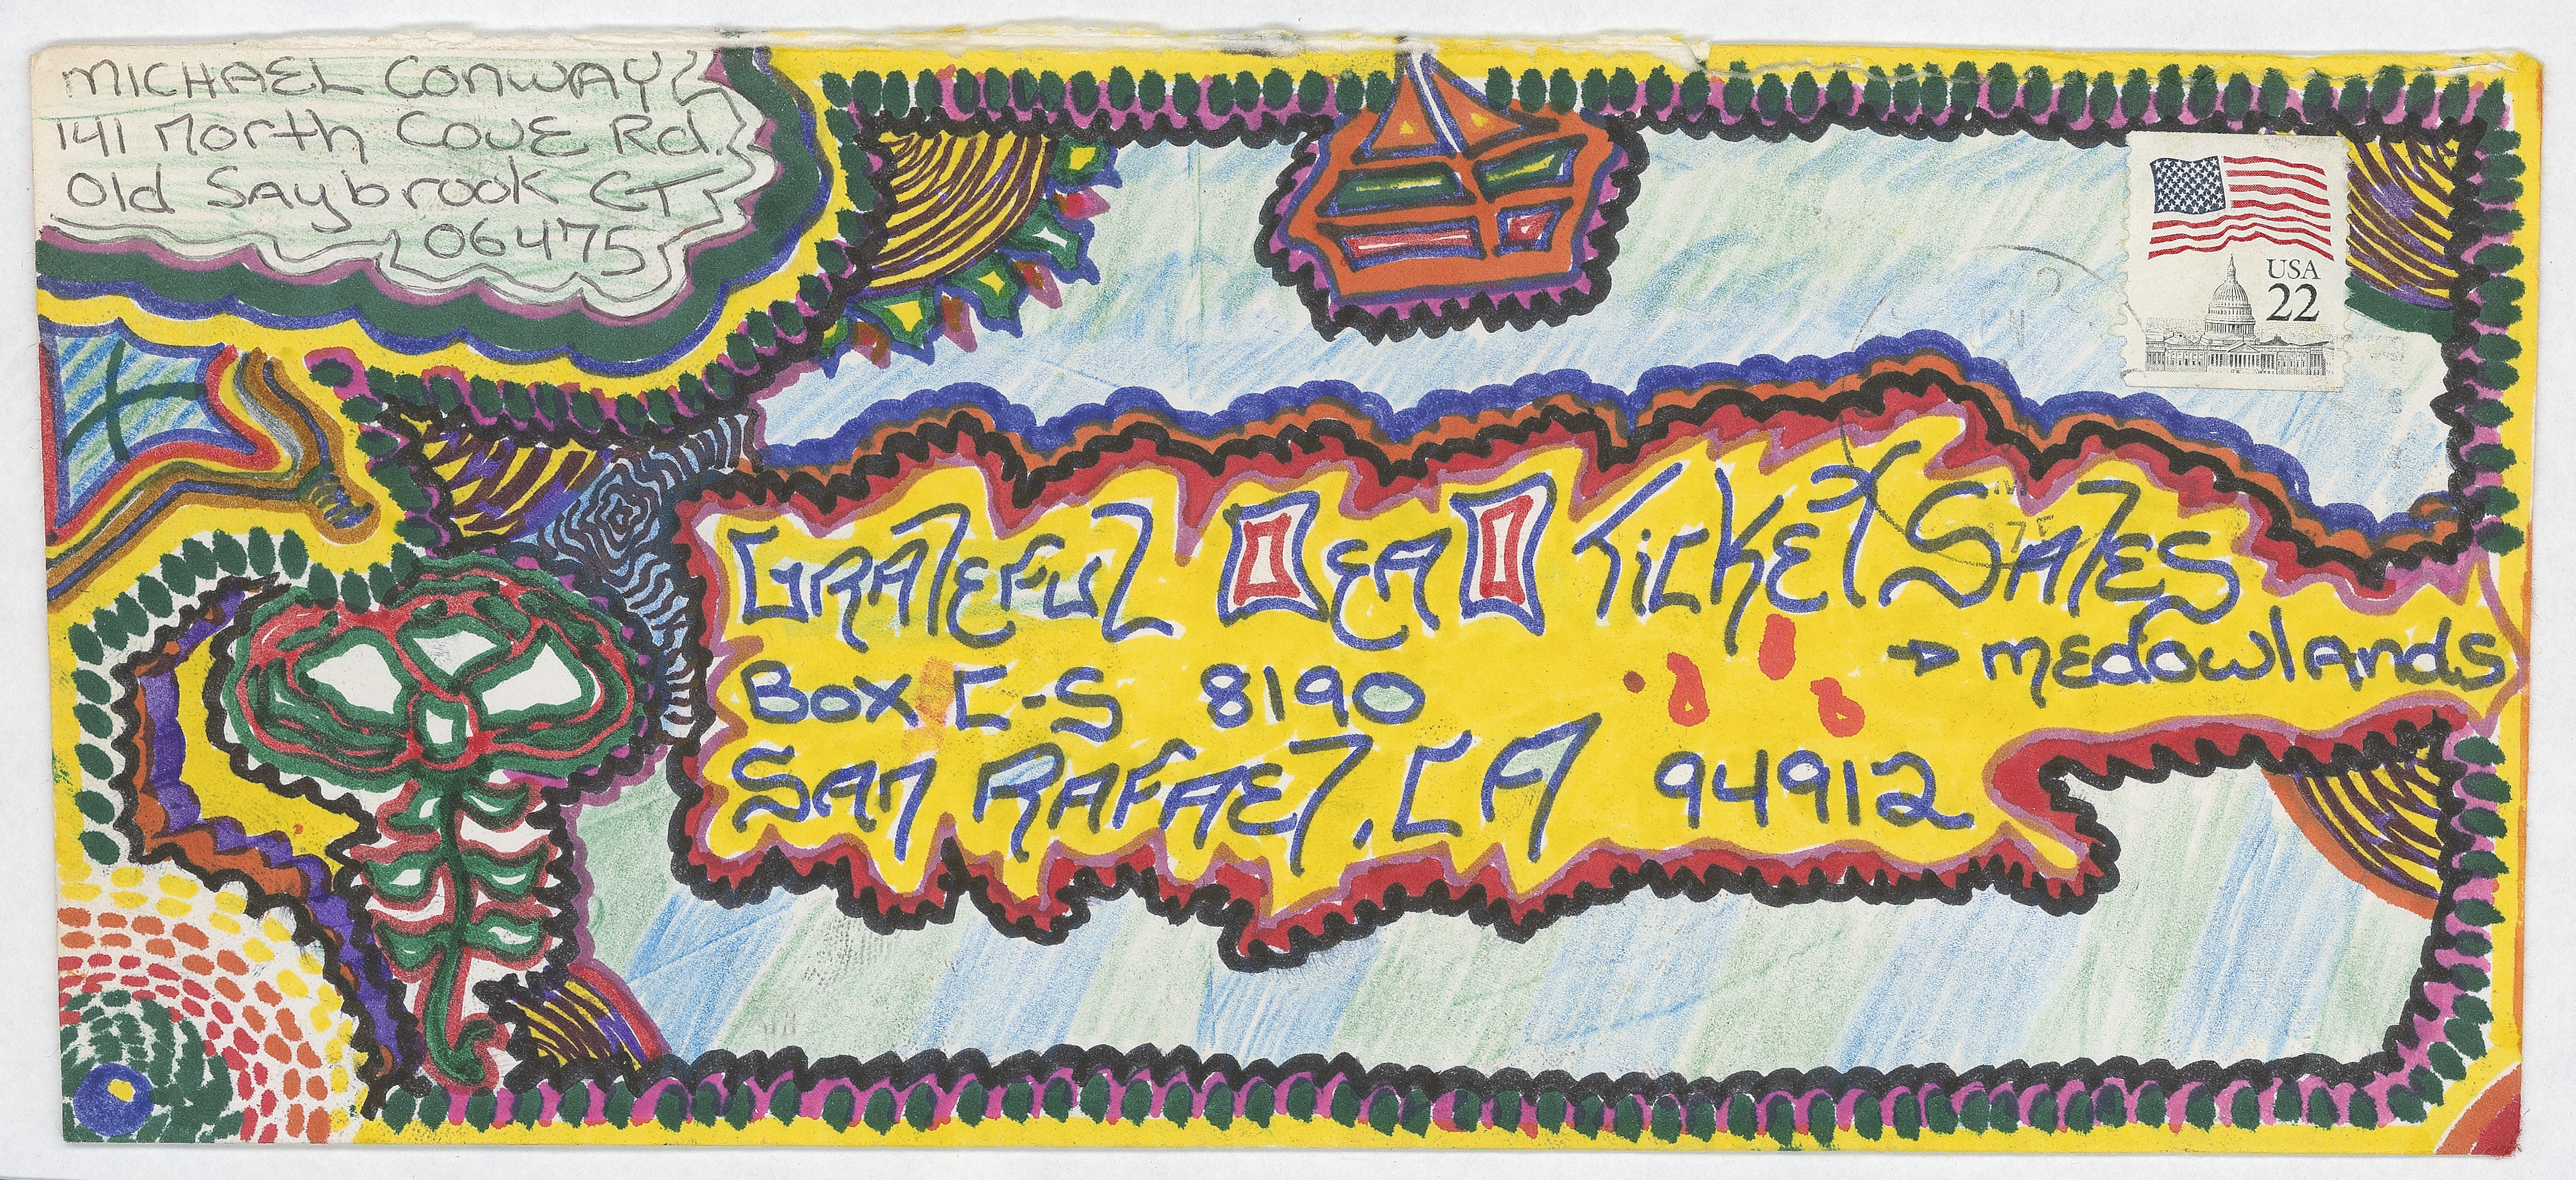 MICHAEL CONWAY
141 North Cove Rd.
Old Saybrook CT
06475
USA
22
GRATEFUL DEAD TICKET SALES
→ MEDOWLANDS
Box C-S 8190
SAN RAFAEL, CA 94912